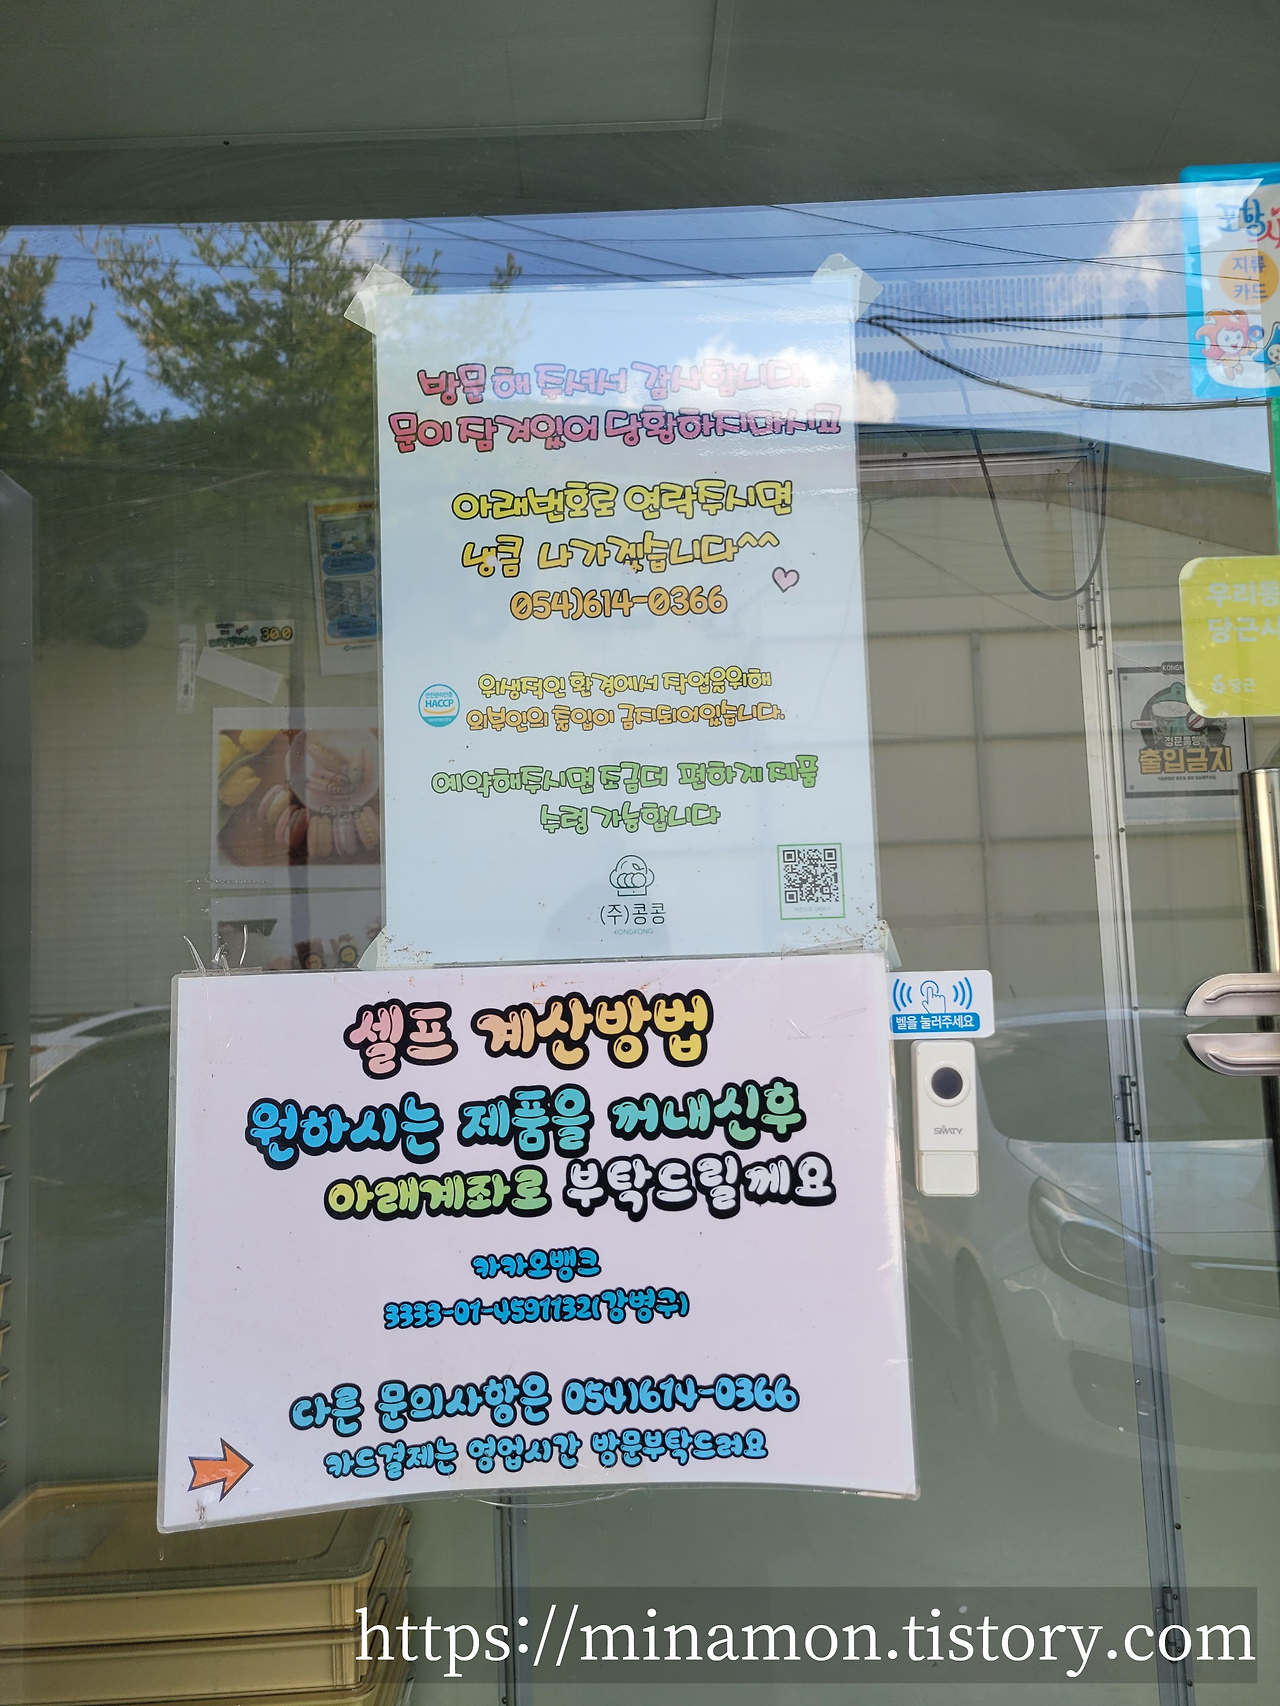 방문해 주셔서 감사합니다.
문이 잠겨있어 당황하지마시고
아래번호로 연락주시면
냉큼 나가겠습니다^^
054)614-0366
HACCP
위생적인 환경에서 작업을위해
외부인의 출입이 금지되어있습니다.
예약해주시면 조금더 편하게 제품
수령 가능합니다
(주)콩콩
KONGKONG
셀프 계산방법
원하시는 제품을 꺼내신후
아래계좌로 부탁드릴께요
카카오뱅크
3333-01-4591132(강병구)
다른 문의사항은 054)614-0366
카드결제는 영업시간 방문부탁드려요
벨을 눌러주세요
SMATY
포항
지류
카드
우리동
당근
당근
출입금지
300
https://minamon.tistory.com